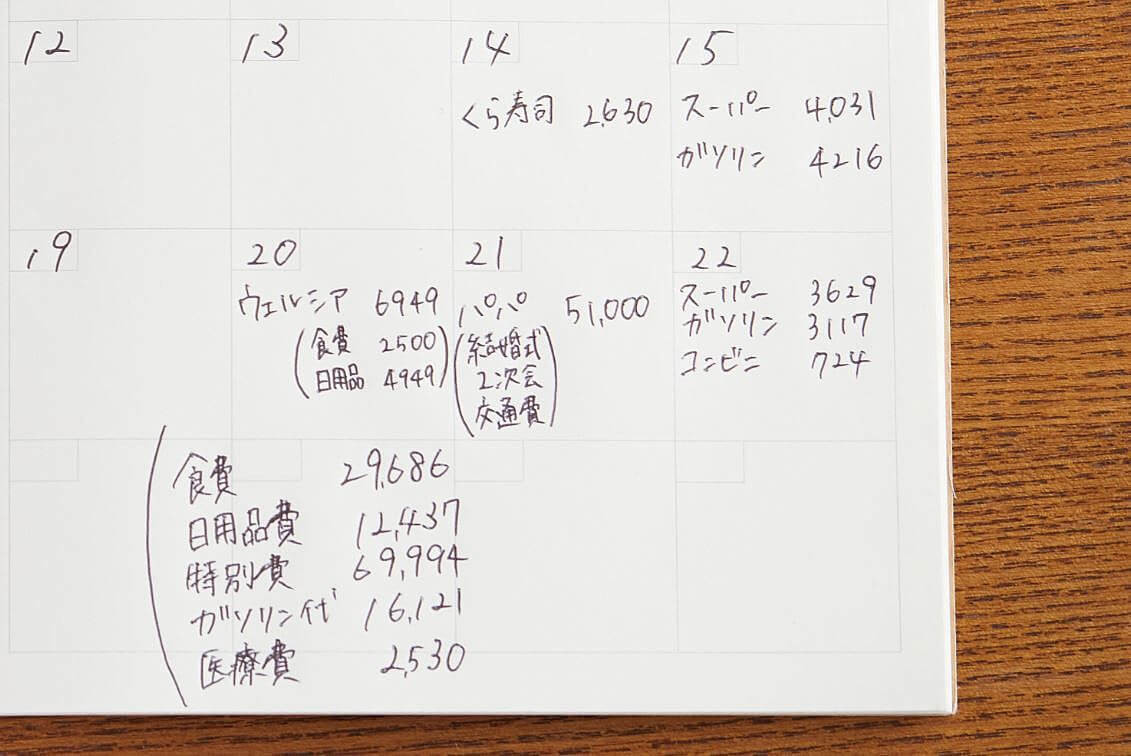 12
13
14
くら寿司 2,630
15
スーパー 4,031
ガソリン 4216
19
20
ウェルシア 6949
(食費 2500
日用品 4949)
21
パパ 51,000
(結婚式
2次会
交通費)
22
スーパー 3629
ガソリン 3117
コンビニ 724
(食費 29,686
日用品費 12,437
特別費 69,994
ガソリン代 16,121
医療費 2,530